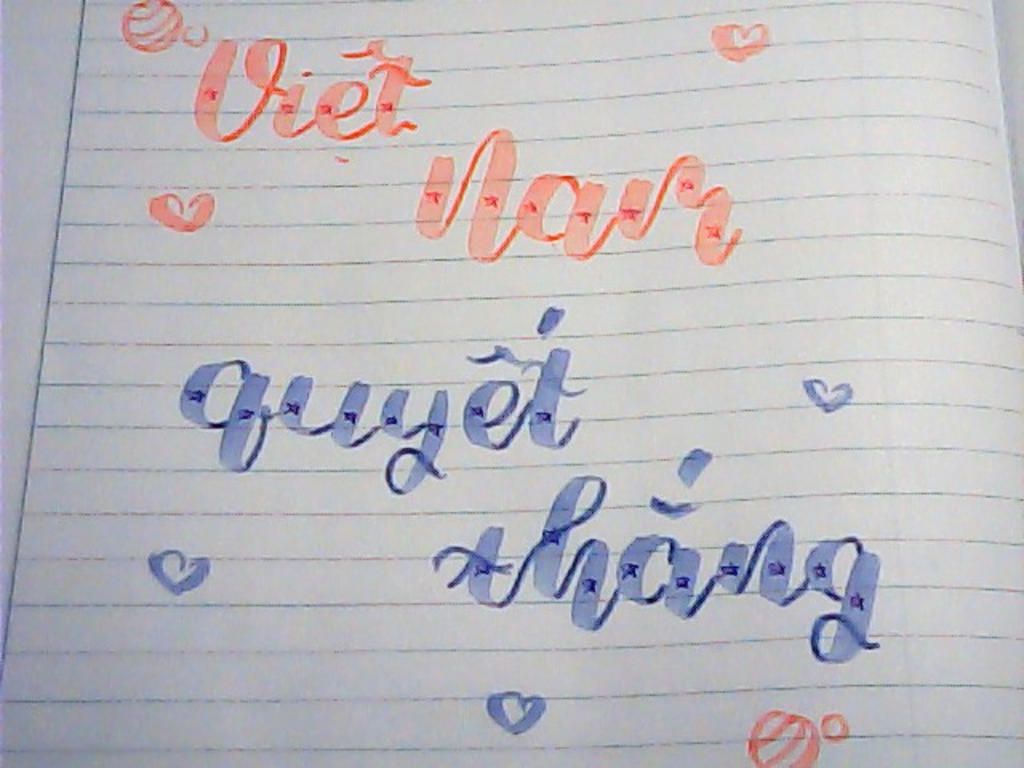 Việt
Nam
quyết
thắng